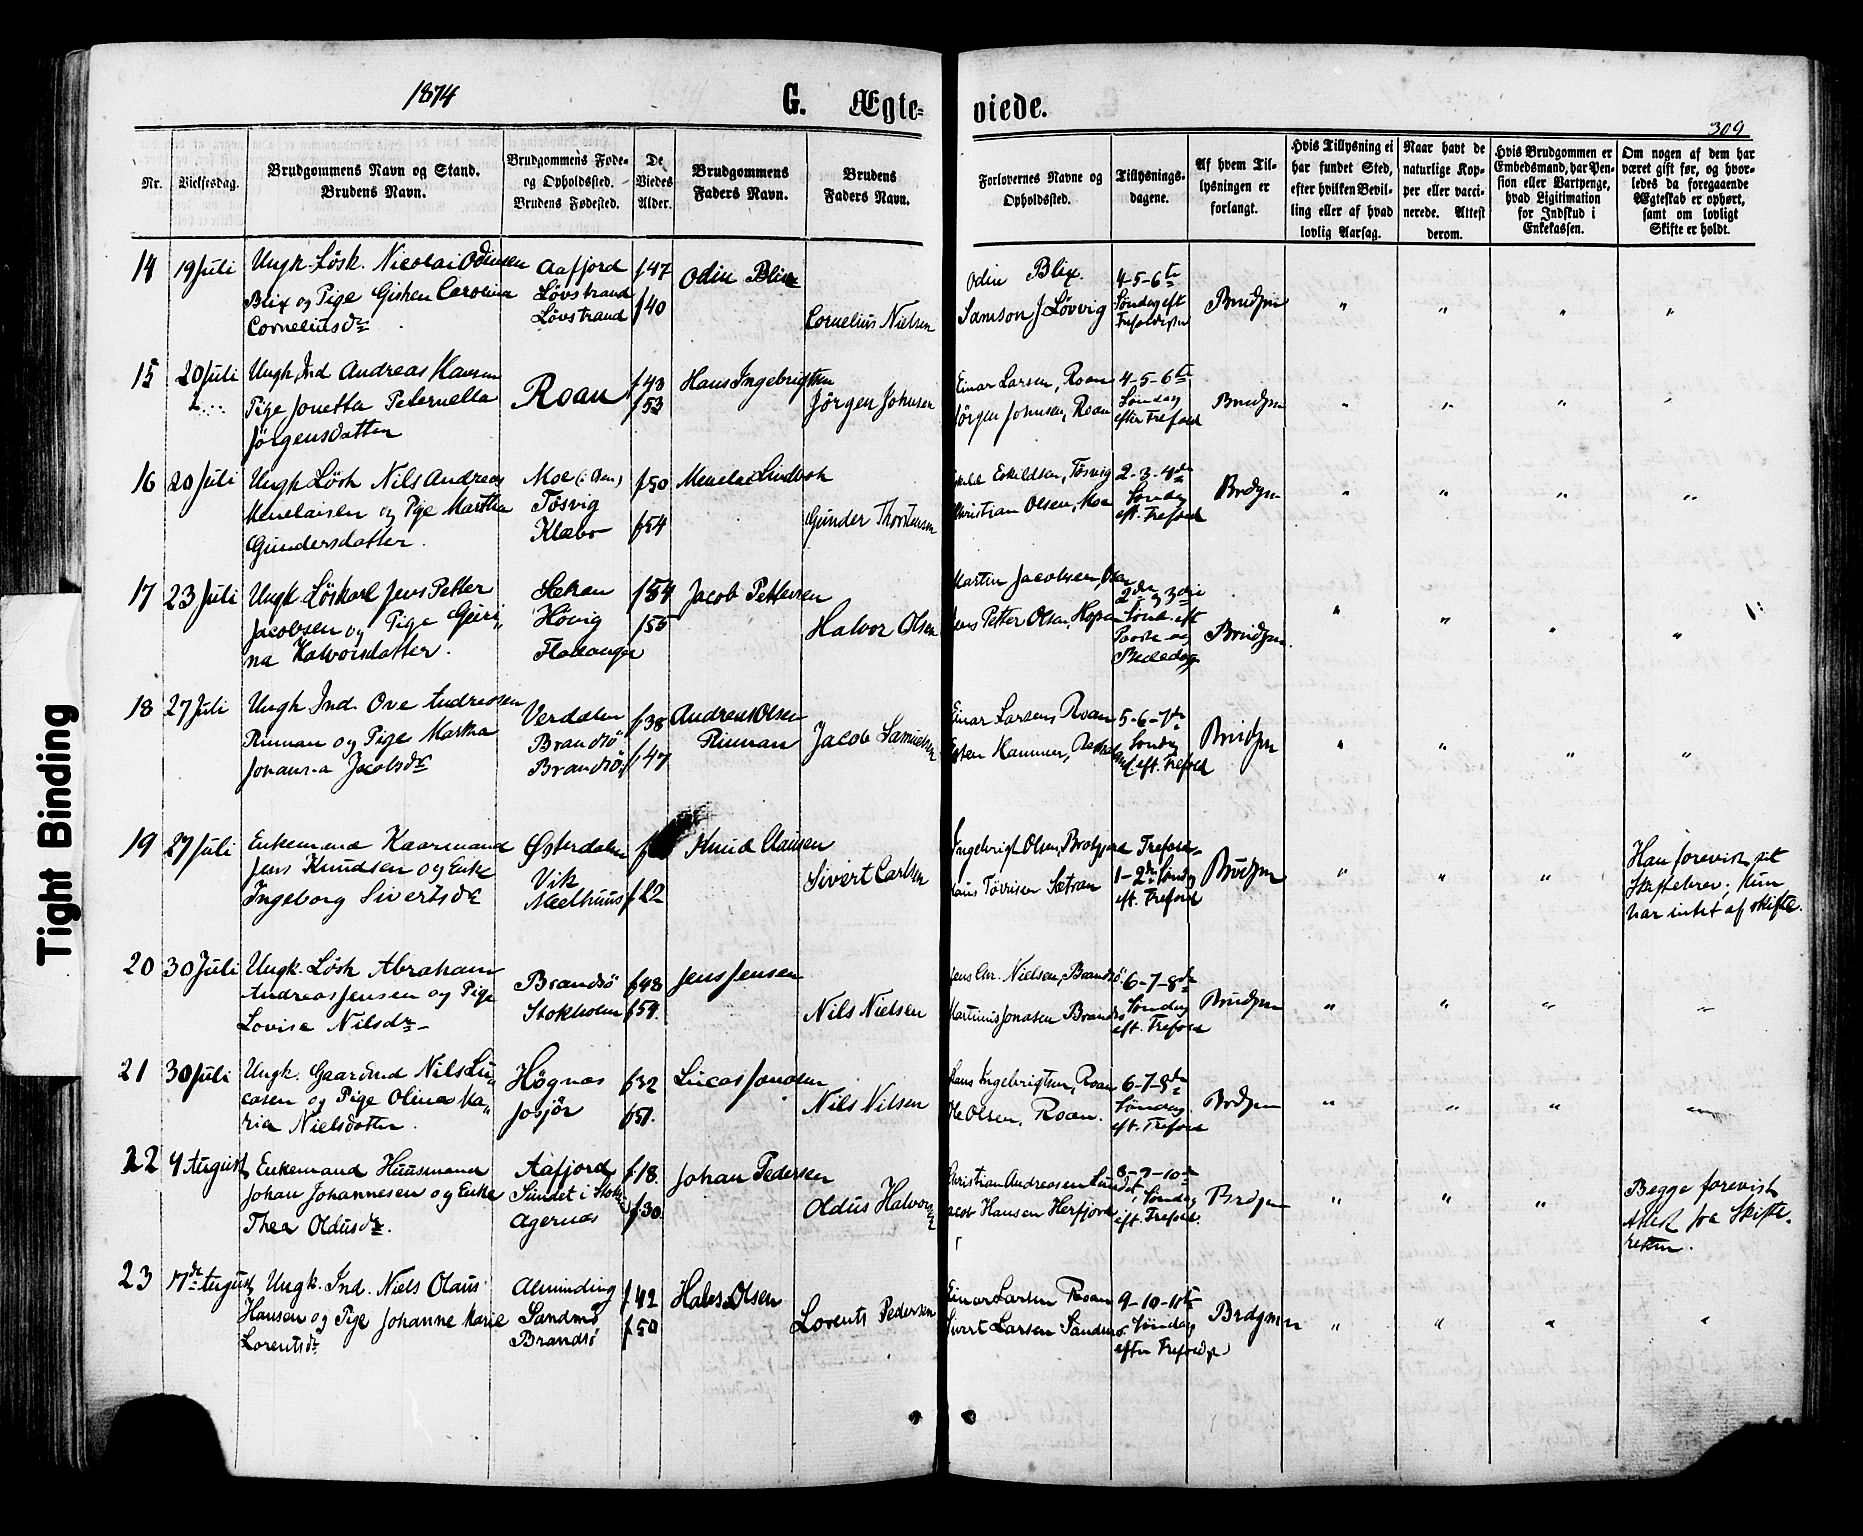 1874
G. Ægte-
viede.
309
Nr.
Vielsesdag.
Brudgommens Navn og Stand.
Brudens Navn.
Brudgommens Føde-
og Opholdssted.
Brudens Fødested.
De
Viedes
Alder.
Brudgommens
Faders Navn.
Brudens
Faders Navn.
Forlovernes Navne og
Opholdssted.
Tillysnings-
dagene.
Af hvem Til-
lysningen er
forlangt.
Hvis Tillysning ei
har fundet Sted,
efter hvilken Bevil-
ling eller af hvad
lovlig Aarsag.
Naar havt de
naturlige Kop-
per eller vacci-
nerede. Attest
derom.
Hvis Brudgommen er
Embedsmand, har Pen-
sion eller Vartpenge,
hvad Ligitimation
for Indskud i
Enkekassen.
Om nogen af dem har
været gift før, og hvor-
ledes da foregaaende
Ægteskab er ophørt,
samt om lovligt
Skifte er holdt.
14 19 Juli
Ungk. Løsk. Nicolai Odinsen
Blix og Pige Gishen Carolina
Corneliusdr
Aafjord
Løvstrand
Løvstrand
f 47
f 40
Odin Blix
Cornelius Nielsen
Odin Blix.
Samson J Løvvig
4-5-6te
Søndag eft
Brudgm
" " " "
15 20 Juli
Ungk. Ind Andreas Hansen
Pige Jonetta Peternella
Jörgensdatter
Roan
f 43
f 53
Hans Ingebrigtsen
Jörgen Johnsen
Einar Larsen, Roan
Jørgen Johnsen, Roan
4-5-6te
Søndag
efter Trefold
Brudgm
" " " "
16 20 Juli
Ungk. Løsk Nils Andreas
Menelaisen og Pige Martha
Gundersdatter.
Moe
Tösvig
Klæbo
f 50
f 54
Menelai Lindbok
Gunder Thorstensen
Eskildsen, Tösvig
Christian Olsen, Moe
2-3-4de
Søndg
eft. Trefold
Brdgm
" " " "
17 23 Juli
Ungk. Löskarl Jens Petter
Jacobsen og Pige Guri„
na Halvorsdatter.
Hövig
Flatanger
f 54
f 55
Jacob Pettersen
Halvor Olsen
Martin Jacobsen,
Jens Petter Olsen, Hopen
2den og 3die
Sønd. eft
Bededag
Brudgm.
" " " "
18 27 Juli
Ungk. Ind. Ove Andreasen
Rinnan og Pige Martha
Johanna Jacobsdr
Verdalen
Brandsö
Brandsö
f 38
f 47
Andreas Olsen
Rinnan
Jacob Samuelsen
Einar Larsen, Roan
Hammer,
5-6-7de
Søndg
eft. Trefold
Brudgm
" " " "
19 27 Juli
Enkemand Kaarmand
Jens Knudsen og Enke
Ingeborg Sivertsdr
Østerdalen
Vik
Meelhuus
f 22
Knud Clausen
Sivert Carlsen
Ingebrigt Olsen,
Trefold-
1-2den Søndg
eft. Trefold
Brudgm
" " "
Han forevist sit
Skiftebrev; Hun
har intet af skifte.
20 30 Juli
Ungk. Løsk Abraham
Andreas Jensen og Pige
Lovise Nilsdr
Brandsö
Stokholm
f 48
f 54.
Jens Jensen
Nils Nielsen
Jens Chr. Nielsen, Brandsö.
Martinus Jonasen Brandsö
6-7-8de
Søndag
eft. Trefold
Brudgm
" " " "
21 30 Juli
Ungk. Gaardmd Nils Lu„
casen og Pige Olina Ma„
ria Nielsdatter.
Högnæs
Josjör
f 32
f 51.
Lucas Jonsen
Nils Nilsen
Hans Ingebrigtsen, Roan
Ole Olsen, Roan.
6-7-8de
Søndag
eft. Trefold
Brdgm
" " " "
22 4 August
Enkemand Huusmand
Johan Johannesen og Enke
Thea Oldusdr.
Aafjord
Sundet i Stok
Agernæs
f 18.
f 30.
Johan Pedersen
Oldus Halvorsen
Christian Andreasen Sundet
Jacob Hansen Herfjord
8-9-10de
Søndag
eft. Trefold.
Brdgm
" " "
Begge forevist
Attest fra Skifte.
retten.
23 17de August
Ungk. Ind. Niels Olaus
Hansen og Pige Johanne Marie
Lorentsdr
Alminding
Sandmo
Brandsö
f 42
f 50
Hans Olsen
Lorents Pedersen
Einar Larsen Roan
Sivert Larsen Sandmo.
9-10-11te
Søndag
efter Trefoldgh
Brdgmn
" " " "
Tight Binding